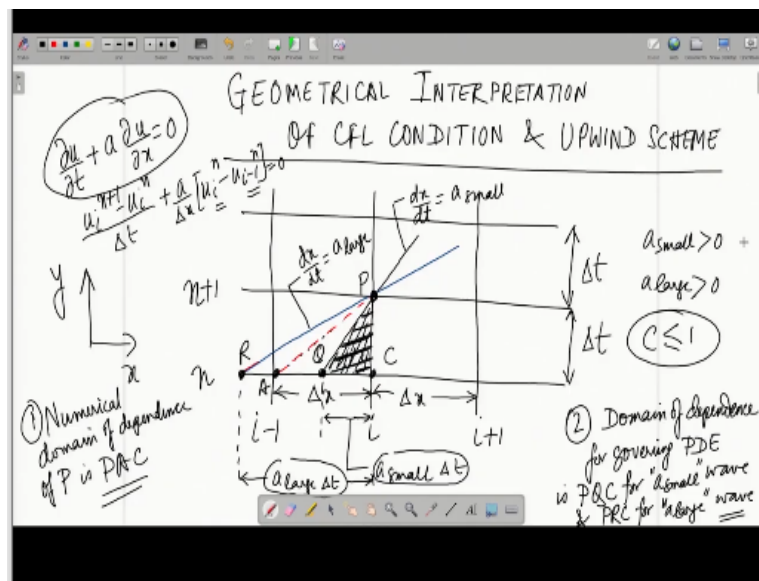 GEOMETRICAL INTERPRETATION
OF CFL CONDITION & UPWIND SCHEME
∂u/∂t + a ∂u/∂x = 0
(u_i^{n+1} - u_i^n)/Δt + a/Δx [u_i^n - u_{i-1}^n] = 0
dx/dt = a small
dx/dt = a large
a small > 0
a large > 0
C ≤ 1
y
x
n+1
n
P
R
A
Q
C
Δt
Δt
Δx
Δx
i-1
i
i+1
a large Δt
a small Δt
① Numerical
domain of dependence
of P is PAC
② Domain of dependence
for governing PDE
is PQC for "a small" wave
& PRC for "a large" wave